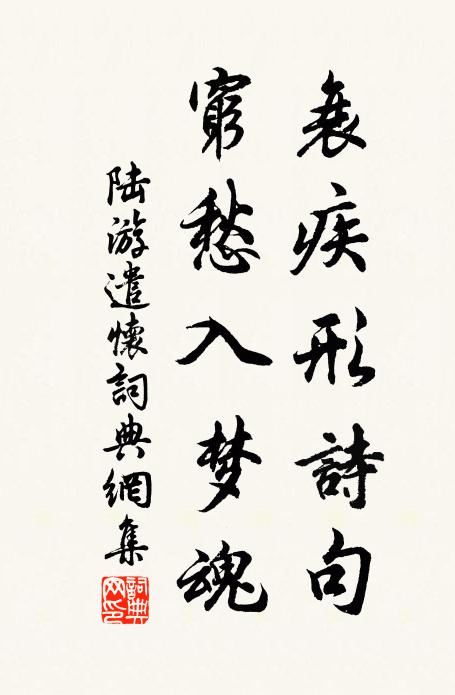 衰疾形詩句
窮愁入梦魂
陆游遣懷詞典網集
詞典网印